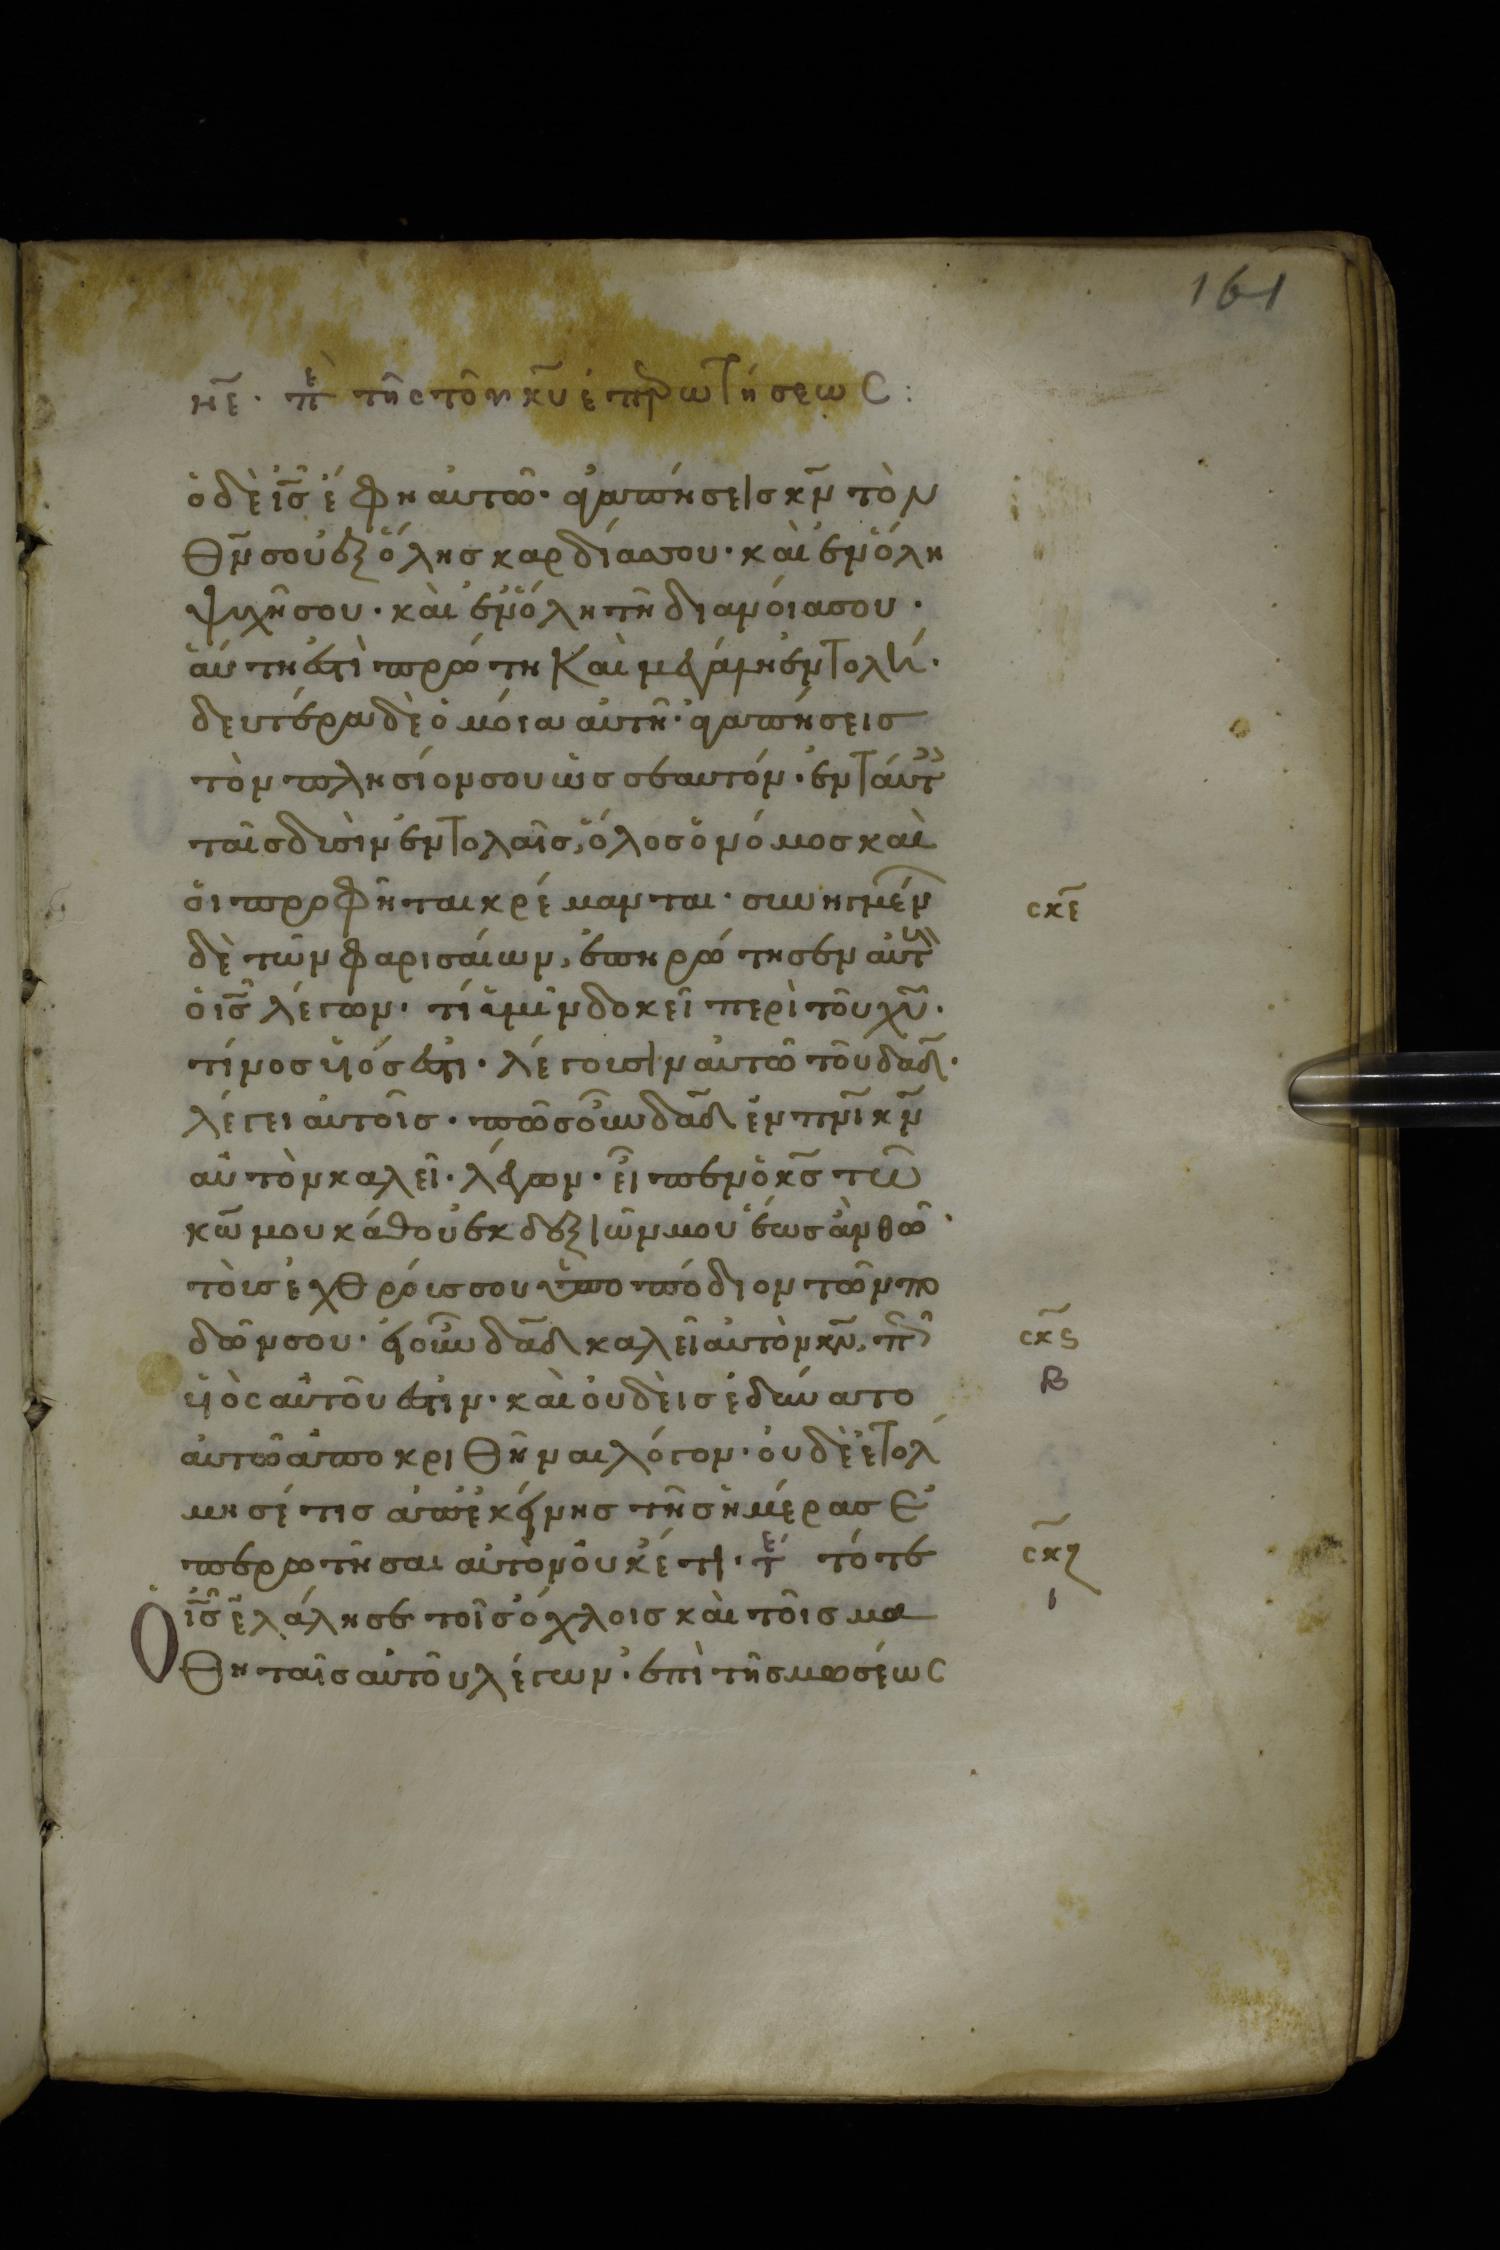 161
νε̅. πὲ τῆς τοῦ κ̅υ ἐπερωτήσεως:
ὁ δὲ ι̅ς̅ ἔφη αὐτῶ· ἀγαπήσεις κ̅ν τὸν
θ̅ν σου ἐξ ὅλης καρδίας σου· καὶ ἐν ὅλη
ψυχῆ σου· καὶ ἐν ὅλη τῆ διανοία σου·
αὕτη ἐστὶ πρώτη καὶ μεγάλη ἐντολή·
δευτέρα δὲ ὁμοία αὐτῆ· ἀγαπήσεις
τὸν πλησίον σου ὡς σεαυτόν· ἐν ταύτ
ταῖς δυσὶν ἐντολαῖς, ὅλος ὁ νόμος καὶ
οἱ προφῆται κρέμανται· συνηγμέν σκ̅ε̅
δὲ τῶν φαρισαίων, ἐπηρώτησεν αὐτ
ὁ ι̅ς̅ λέγων· τί ὑμῖν δοκεῖ περὶ τοῦ χ̅υ̅·
τίνος υἱός ἐστι· λέγουσιν αὐτῶ τοῦ δα̅δ̅·
λέγει αὐτοῖς· πῶς οὖν δα̅δ̅ ἐν π̅ν̅ι κ̅ν
αὐτὸν καλεῖ· λέγων· εἶπεν ὁ κ̅ς̅ τῶ
κ̅ω̅ μου κάθου ἐκ δεξιῶν μου ἕως ἂν θῶ·
τοὺς ἐχθρούς σου ὑποπόδιον τῶν πο
δῶν σου· εἰ οὖν δα̅δ̅ καλεῖ αὐτὸν κ̅ν, π σκ̅ς
β
υἱὸς αὐτοῦ ἐστιν· καὶ οὐδεὶς ἐδύνατο
αὐτῶ ἀποκριθῆναι λόγον· οὐδὲ ἐτόλ
μησέ τις ἀπ' ἐκείνης τῆς ἡμέρας ἐ
περωτῆσαι αὐτὸν οὐκέτι· τε τότε σκ̅ζ
ι
Ὁ ι̅ς̅ ἐλάλησε τοῖς ὄχλοις καὶ τοῖς μα
θηταῖς αὐτοῦ λέγων· ἐπὶ τῆς μωσέως